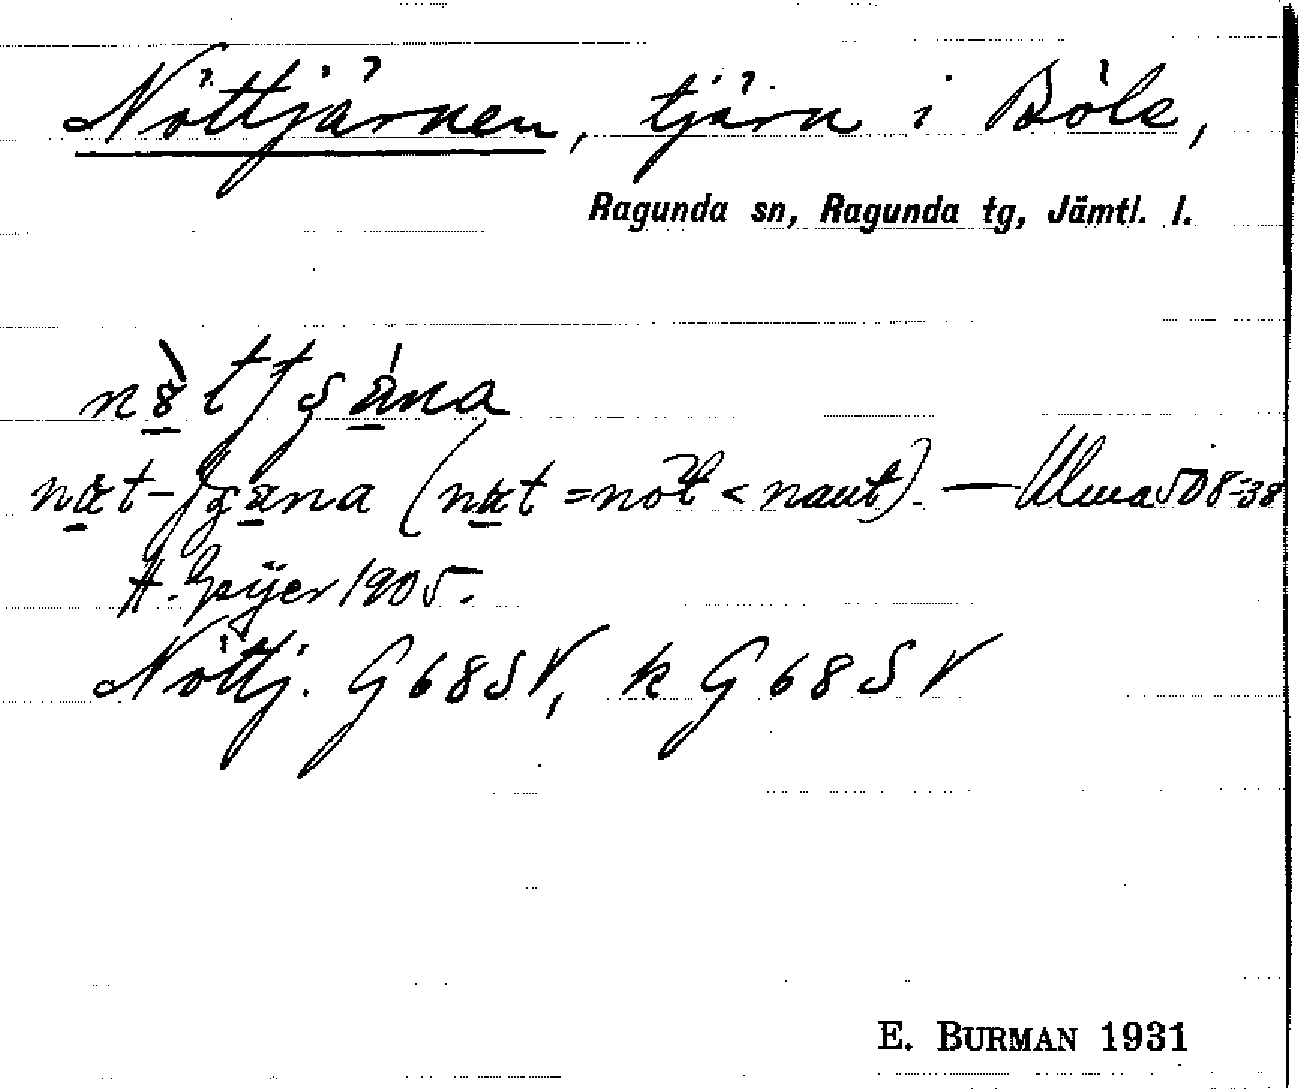 Nöttjärnen, tjärn i Böle,
Ragunda sn, Ragunda tg, Jämtl. l.
(nöt < naut). — Ulma 508:38
A. Geijer 1905.
Nöttj. G68SV, k G68SV
E. BURMAN 1931